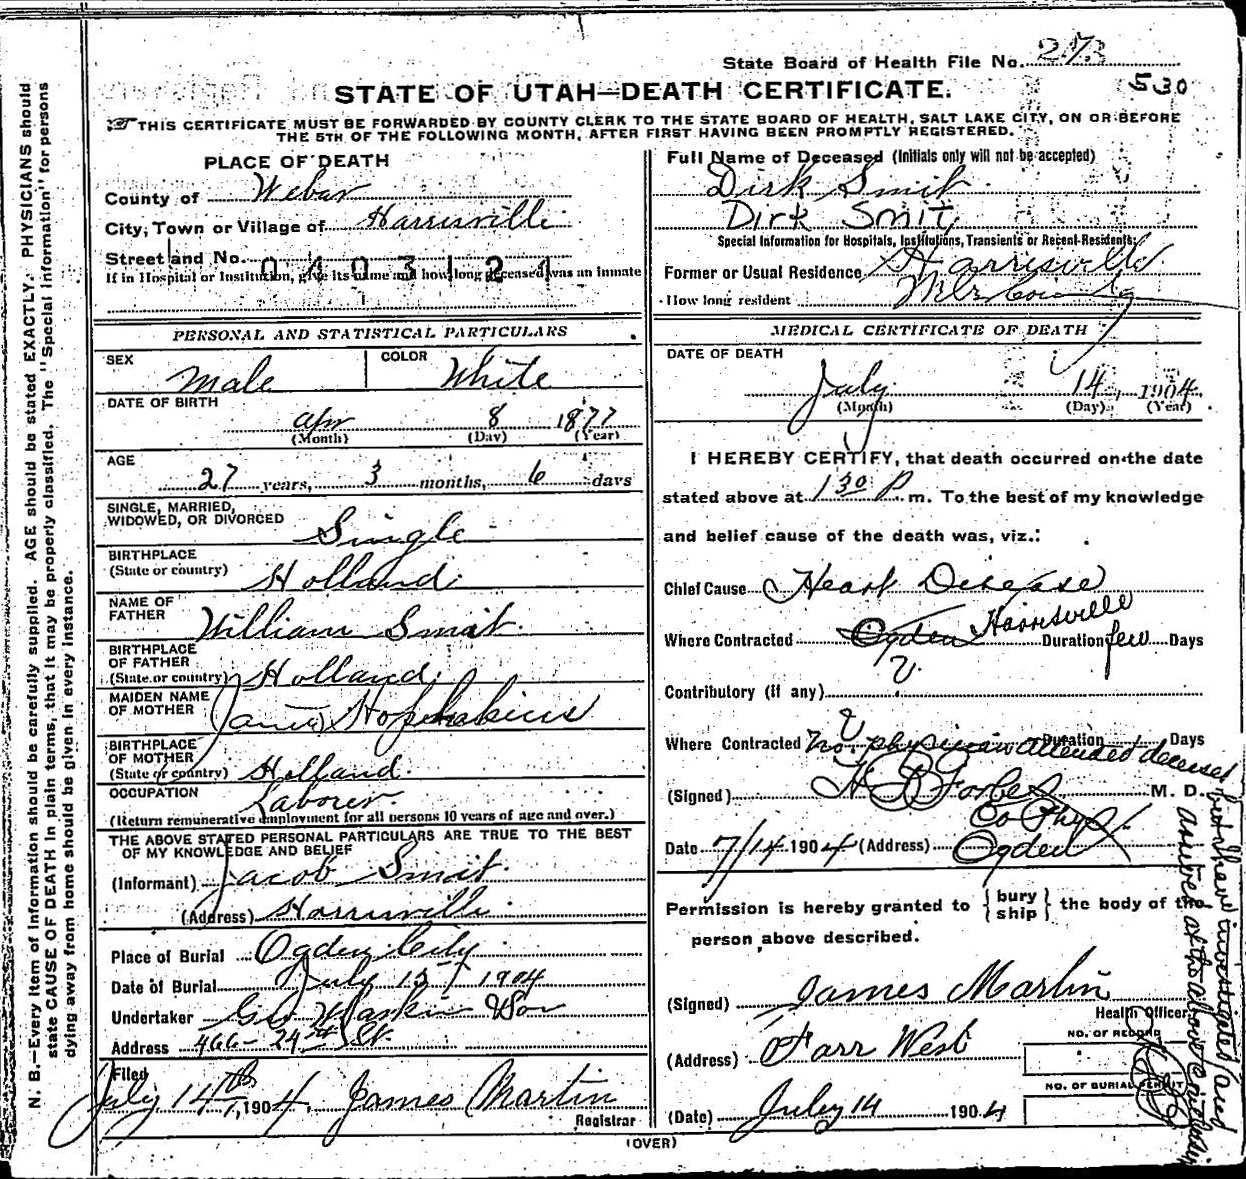 State Board of Health File No. 273
530
STATE OF UTAH—DEATH CERTIFICATE.
THIS CERTIFICATE MUST BE FORWARDED BY COUNTY CLERK TO THE STATE BOARD OF HEALTH, SALT LAKE CITY, ON OR BEFORE
THE 5TH OF THE FOLLOWING MONTH, AFTER FIRST HAVING BEEN PROMPTLY REGISTERED.
N. B.—Every item of information should be carefully supplied. AGE should be stated EXACTLY. PHYSICIANS should
state CAUSE OF DEATH in plain terms, that it may be properly classified. The "Special Information" for persons
dying away from home should be given in every instance.
PLACE OF DEATH
County of Weber
City, Town or Village of Harrisville
Street and No.
0403121
If in Hospital or Institution, give its name and how long deceased was an inmate
Full Name of Deceased (Initials only will not be accepted)
Dirk Smit
Dirk Smit
Special Information for Hospitals, Institutions, Transients or Recent Residents:
Former or Usual Residence Harrisville
How long resident
PERSONAL AND STATISTICAL PARTICULARS
SEX Male
COLOR White
DATE OF BIRTH
Apr 8 1877
(Month) (Day) (Year)
AGE
27 years, 3 months, 6 days
SINGLE, MARRIED,
WIDOWED, OR DIVORCED Single
BIRTHPLACE
(State or country) Holland
NAME OF
FATHER William Smit
BIRTHPLACE
OF FATHER
(State or country) Holland
MAIDEN NAME
OF MOTHER
BIRTHPLACE
OF MOTHER
(State or country) Holland
OCCUPATION Laborer
(Return remunerative employment for all persons 10 years of age and over.)
THE ABOVE STATED PERSONAL PARTICULARS ARE TRUE TO THE BEST
OF MY KNOWLEDGE AND BELIEF
(Informant) Jacob Smit
(Address) Harrisville
Place of Burial Ogden City
Date of Burial July 15 1904
Undertaker Larkin & Son
Address 466-24th St.
Filed
July 14th, 1904, James Martin
Registrar
MEDICAL CERTIFICATE OF DEATH
DATE OF DEATH
July 14, 1904
(Month) (Day) (Year)
I HEREBY CERTIFY, that death occurred on the date
stated above at 1 30 P. m. To the best of my knowledge
and belief cause of the death was, viz.:
Chief Cause Heart Disease
Where Contracted Ogden Harrisville Duration few Days
Contributory (if any)
Where Contracted Duration Days
no physician attended deceased
but I have investigated and
(Signed) H B Forbes M. D.
Co Phys
Date 7/14 1904 (Address) Ogden
Permission is hereby granted to { bury ship } the body of the
person above described.
(Signed) James Martin
Health Officer
(Address) Farr West
NO. OF RECORD
NO. OF BURIAL PERMIT
(Date) July 14 1904
(OVER)